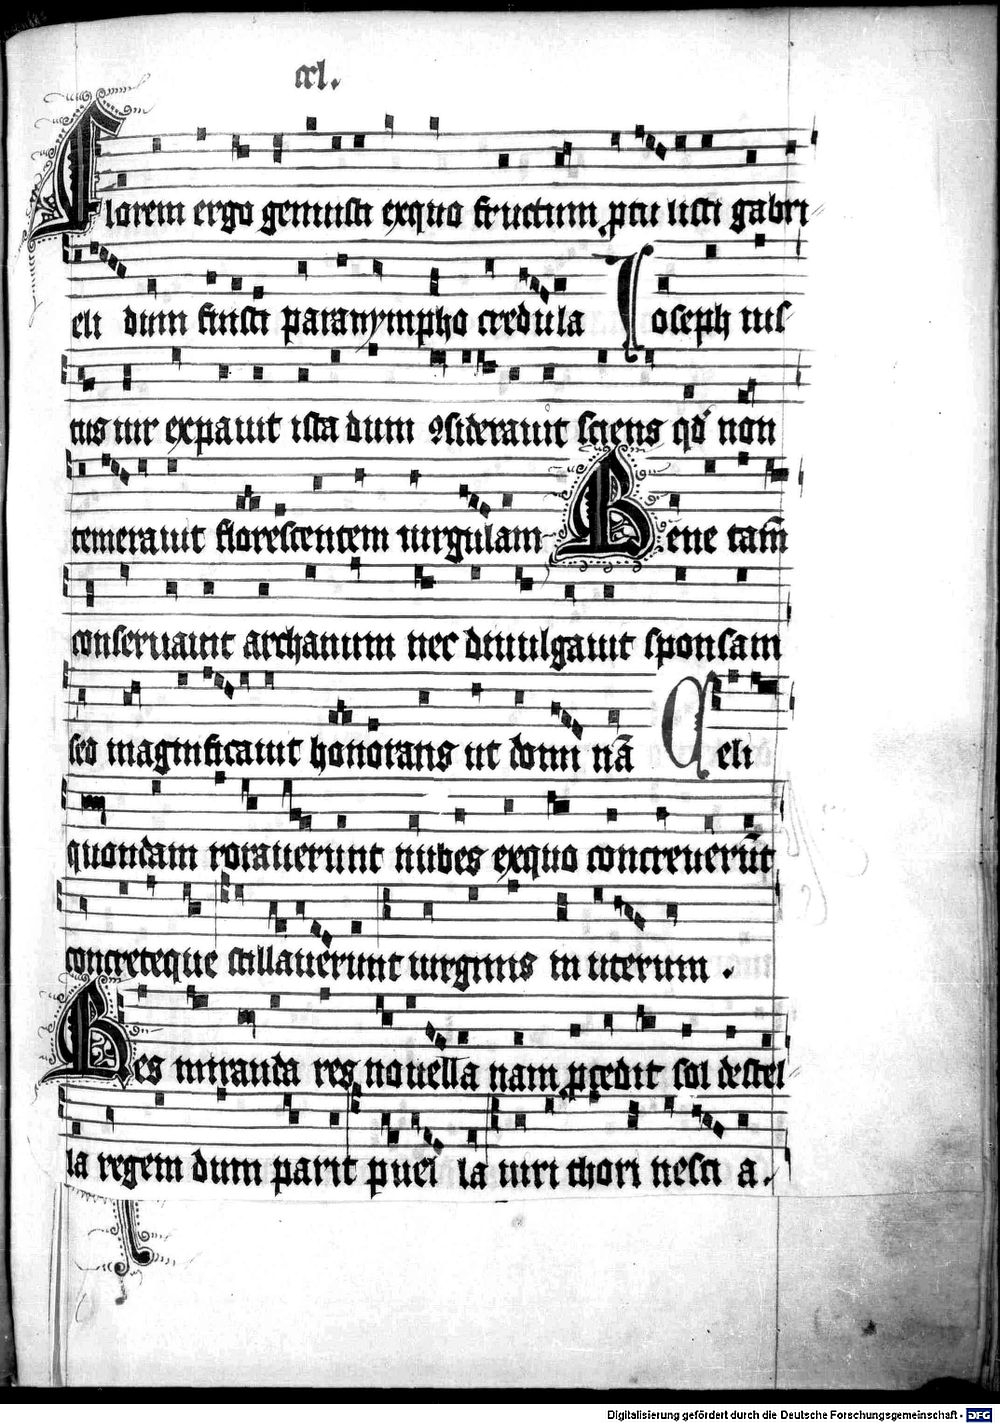 cxl.
Florem ergo genuisti exquo fructum ptu uisti gabri
eli dum fuisti paranympho credula Ioseph ius
tus uir expauit ista dum ꝯsiderauit sciens qđ non
temerauit florescentem uirgulam Bene tam̄
conseruauit archanum nec diuulgauit sponsam
sed magnificauit honorans ut domi nā Celi
quondam rorauerunt nubes exquo concreuerūt
concreteque stillauerunt uirginis in uterum .
Res miranda res nouella nam ꝓcedit sol destel
la regem dum parit puel la uiri thori nesci a.
Digitalisierung gefördert durch die Deutsche Forschungsgemeinschaft - DFG